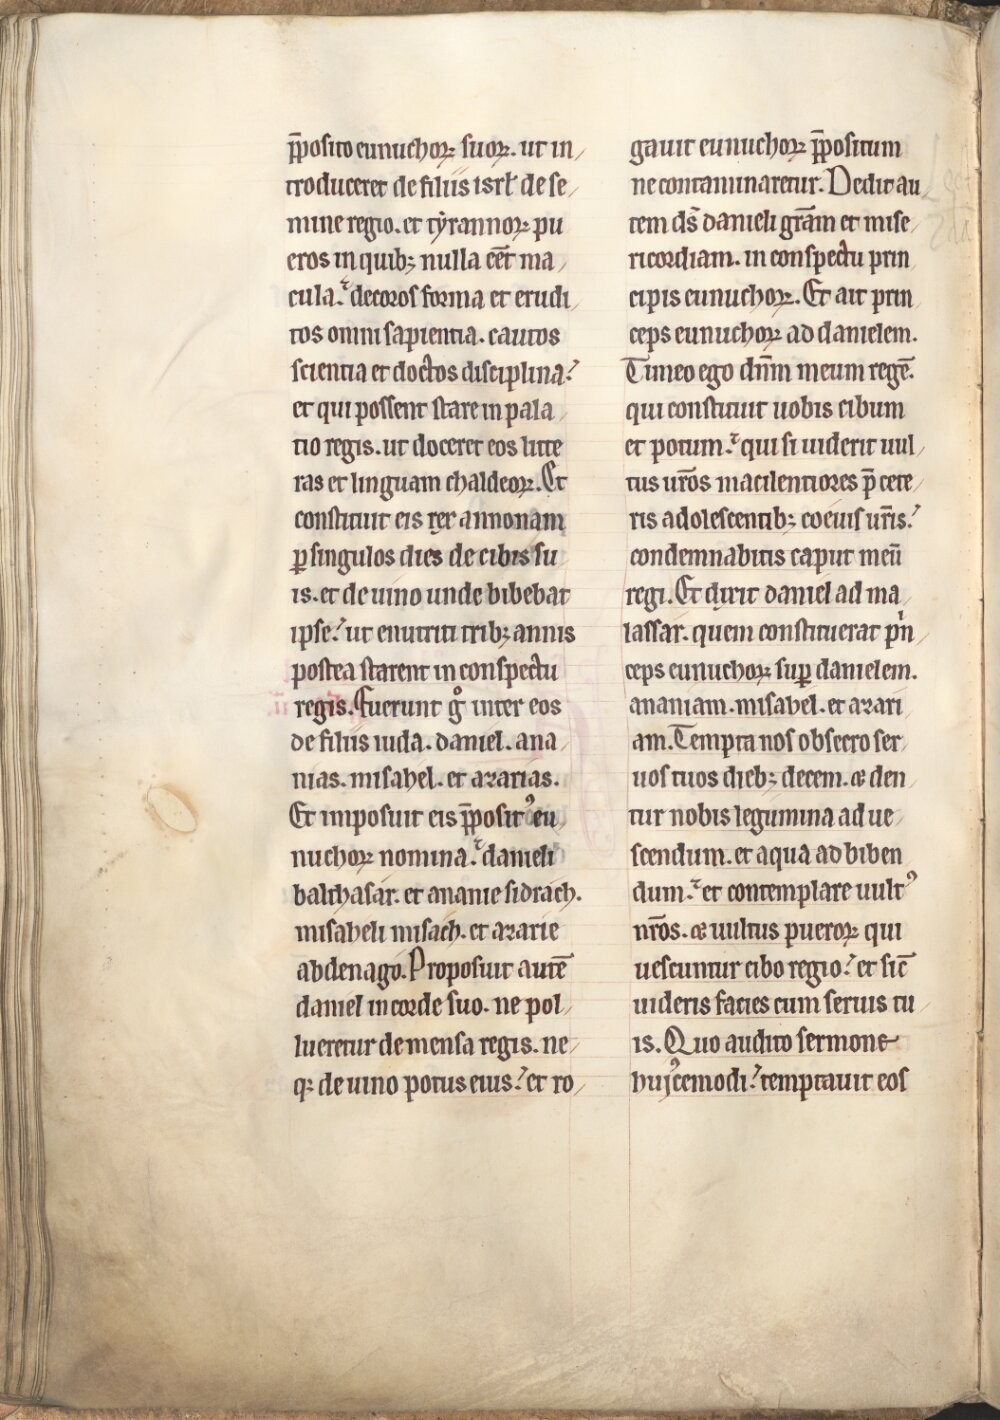 p̄posito eunuchoꝝ suoꝝ. ut in
troduceret de filiis isrł de se
mine regio. et tẏrannoꝝ pu
eros in quibꝫ nulla eēt ma
cula. decoros forma et erudi
tos omni sapientia. cautos
scientia et doctos disciplina.
et qui possent stare in pala
tio regis. ut doceret eos litte
ras et linguam chaldeoꝝ. Et
constituit eis rex annonam
ꝑ singulos dies de cibis su
is. et de uino unde bibebat
ipse. ut enutriti tribꝫ annis
postea starent in conspectu
regis. Fuerunt gͦ inter eos
de filiis iuda. daniel. ana
nias. misahel. et azarias.
Et imposuit eis p̄positꝰ eu
nuchoꝝ nomina. danieli
balthasar. et ananie sidrach.
misaheli misach. et azarie
abdenago. Proposuit autē
daniel in corde suo. ne pol
lueretur de mensa regis. ne
qꝫ de uino potus eius. et ro
gauit eunuchoꝝ p̄positum
ne contaminaretur. Dedit au
tem ds̄ danieli gr̄am et mise
ricordiam. in conspectu prin
cipis eunuchoꝝ. Et ait prin
ceps eunuchoꝝ ad danielem.
Timeo ego dn̄m meum regē.
qui constituit uobis cibum
et potum. qui si uiderit uul
tus ur̄os macilentiores p̄ cete
ris adolescentibꝫ coeuis ur̄is.
condemnabitis caput meū
regi. Et dixit daniel ad ma
lassar. quem constituerat pⁱn
ceps eunuchoꝝ suꝑ danielem.
ananiam. misahel. et azari
am. Tempta nos obsecro ser
uos tuos diebꝫ decem. et den
tur nobis legumina ad ue
scendum. et aqua ad biben
dum. et contemplare uultꝰ
nr̄os. et uultus pueroꝝ qui
uescuntur cibo regio. et sic̄
uideris facies cum seruis tu
is. Quo audito sermone
huꝰcemodi. temptauit eos